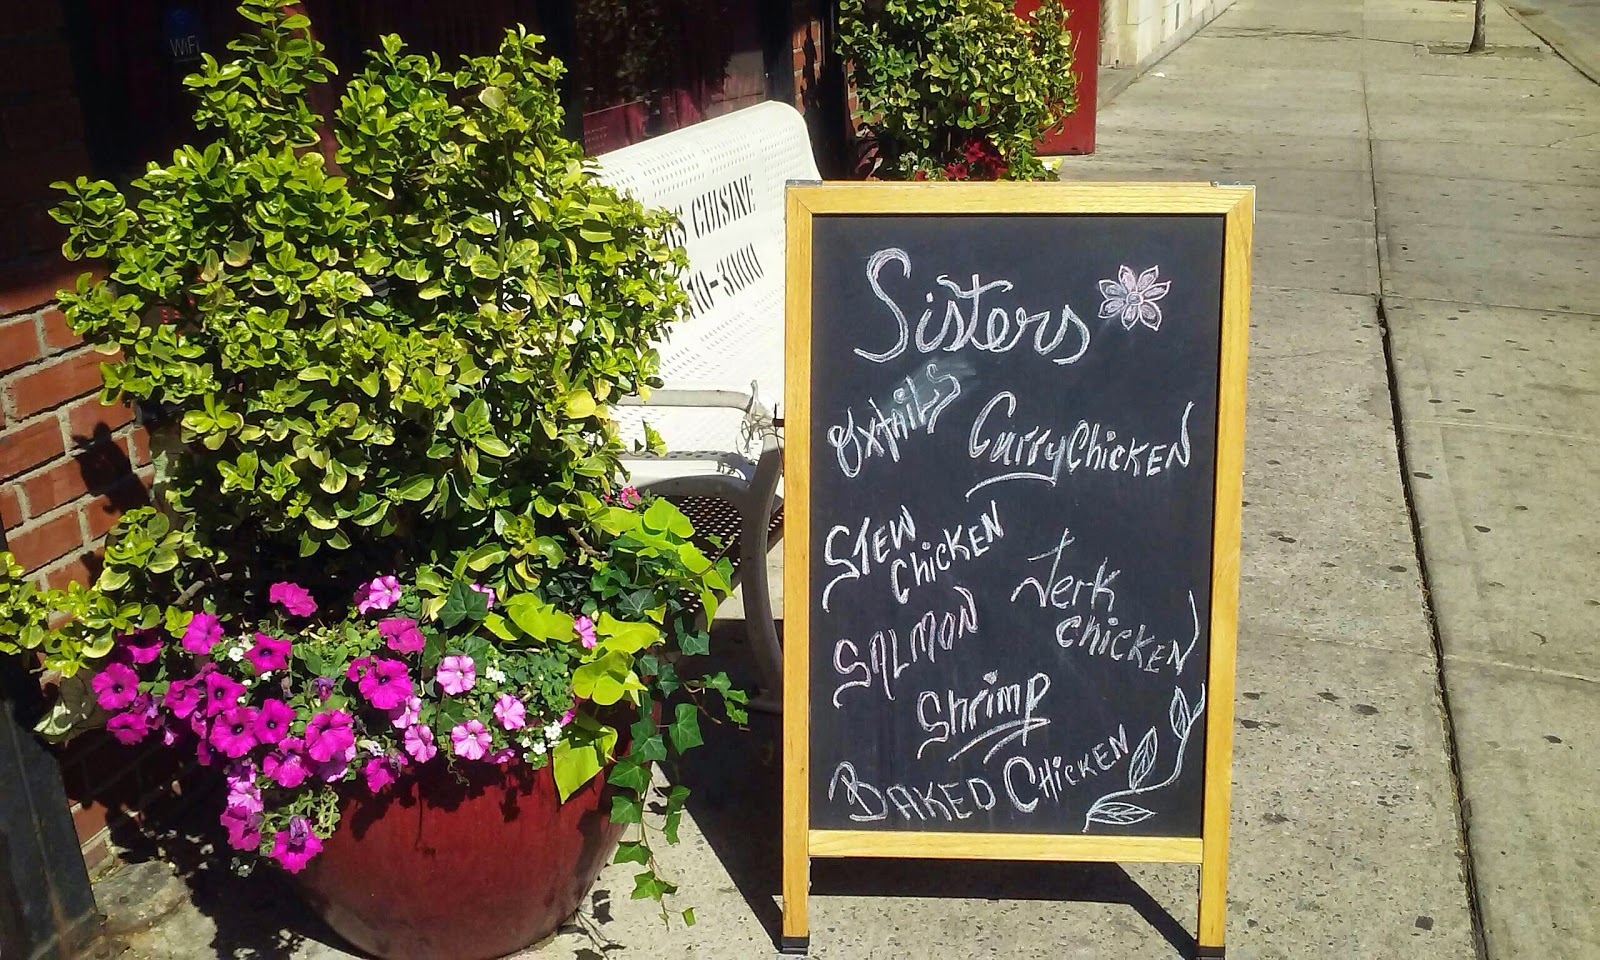 WiFi
CUISINE
10-3000
Sisters
Oxtails
Curry Chicken
Stew
Chicken
Jerk
Chicken
Salmon
Shrimp
Baked Chicken